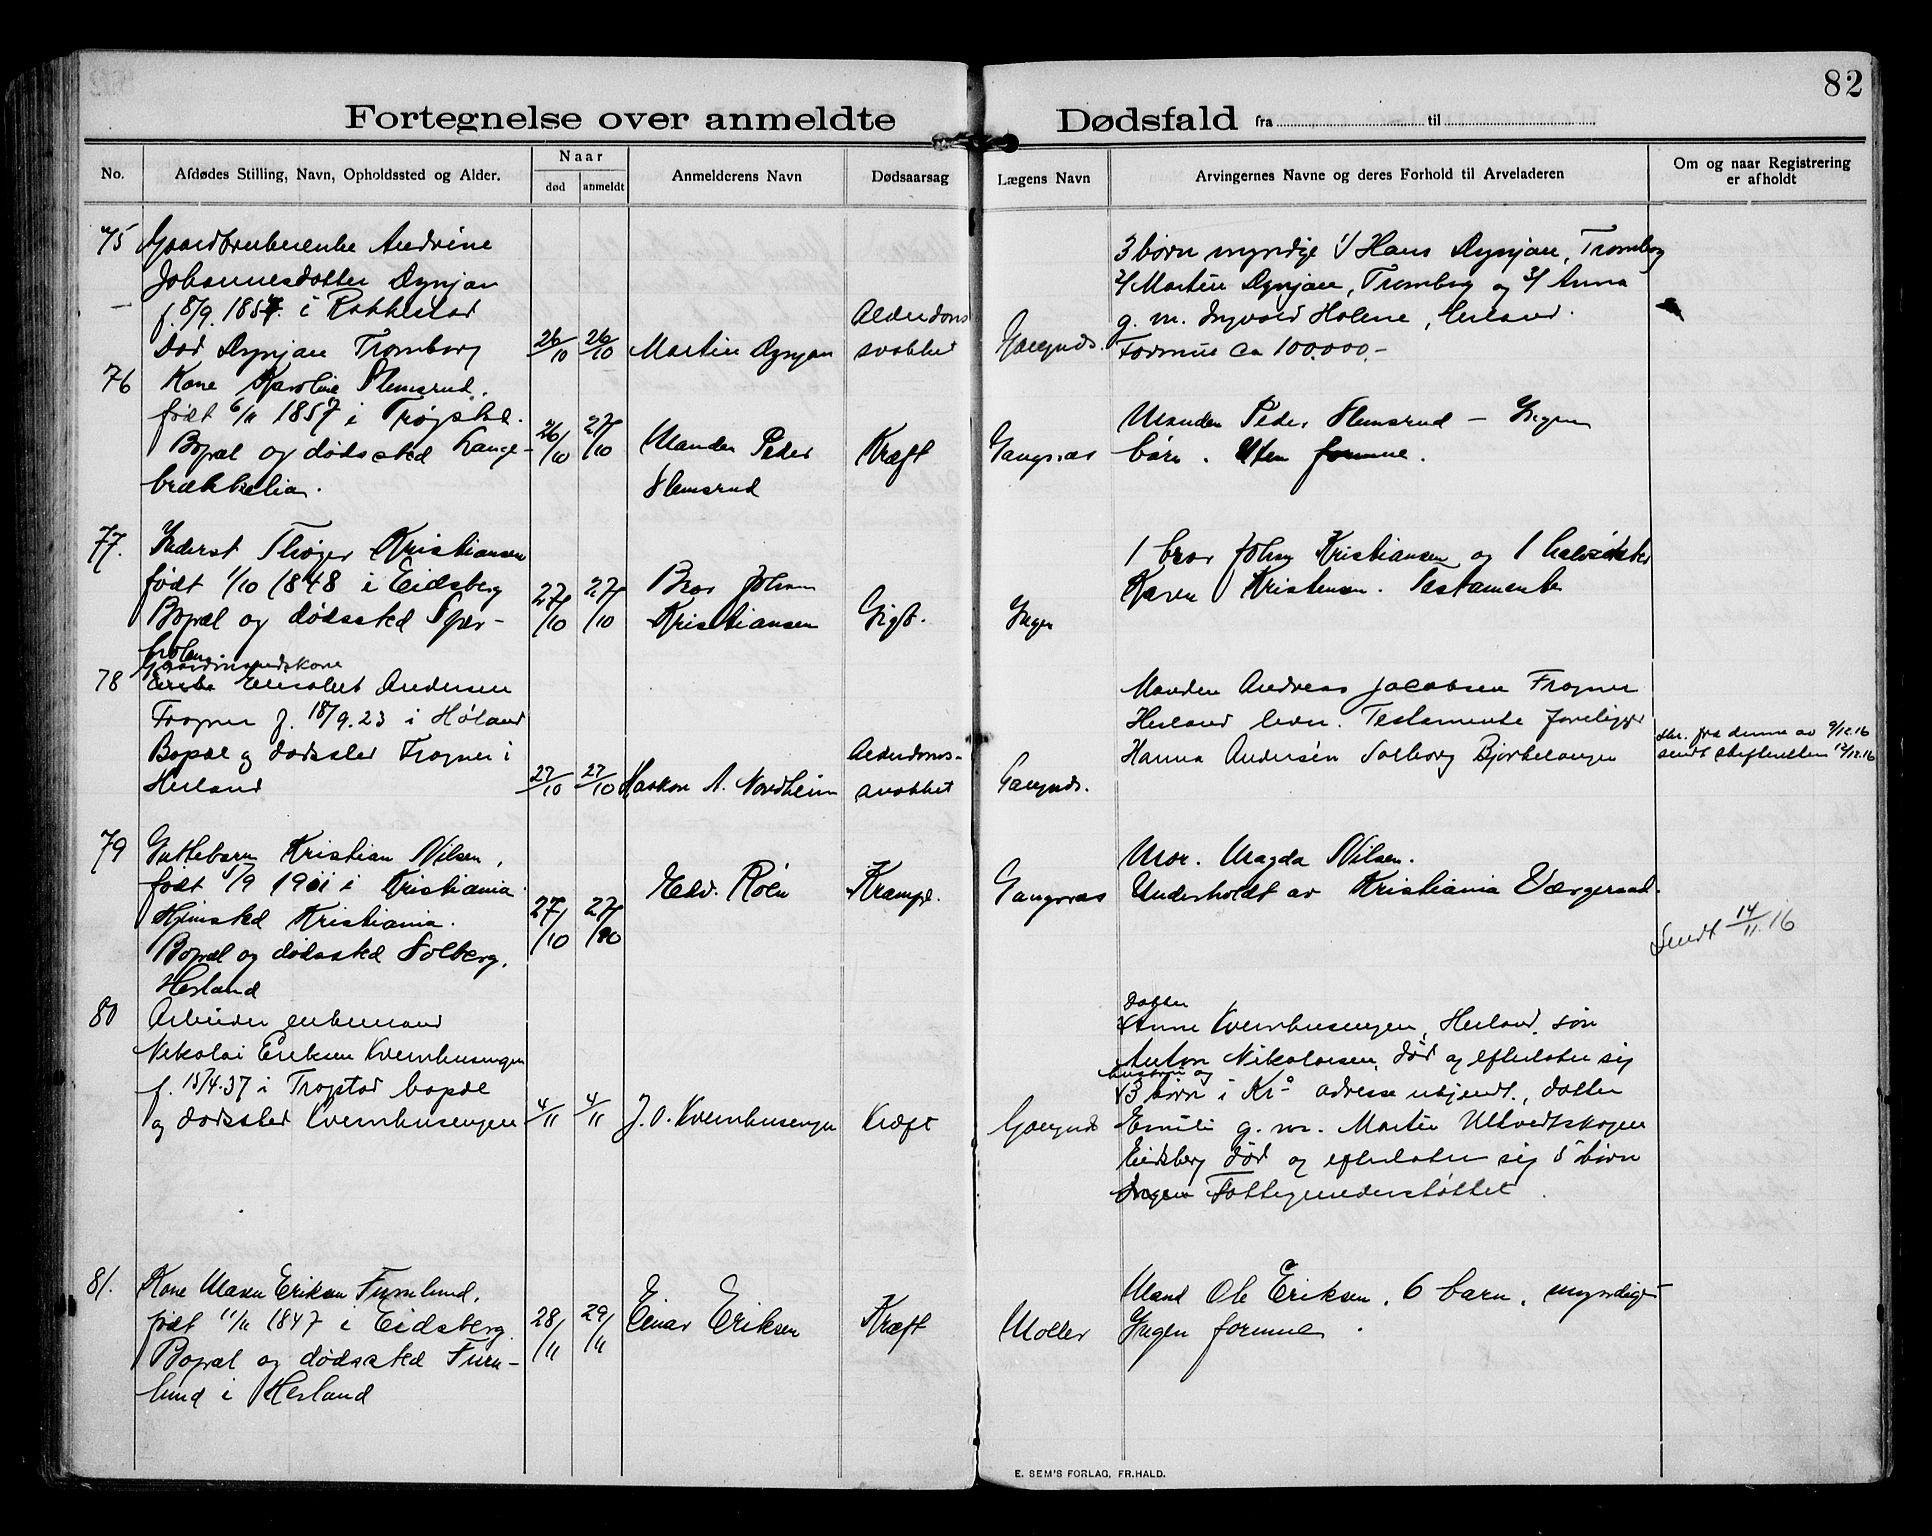 82
Fortegnelse over anmeldte Dødsfald fra til
No.
Afdødes Stilling, Navn, Opholdssted og Alder.
Naar
død
anmeldt
Anmelderens Navn
Dødsaarsag
Lægens Navn
Arvingernes Navne og deres Forhold til Arveladeren
Om og naar Registrering
er afholdt
75
Andrine
Johannesdotter Dynjan
f. 8/9. 185 i Rakkestad
Død Dynjan Tromborg
26/10
26/10
Martin Dynjan
Alderdoms
svakhet
3 børn myndige 1/ Hans Dynjan, Tromborg
2/ Martin Dynjan, Tromborg og 3/ Anna
g. m. Ingvald Holene, Herland.
Formue ca 100.000.-
76
Kone Karoline Slemsrud.
født 6/11 1857 i Trøgstad.
Bopæl og dødssted Lange-
brækkelia.
26/10
27/10
Manden Peder
Slemsrud
Kræft
Gangnæs
Manden Peder Slemsrud — Ingen
børn. Uten formue.
77.
Inderst Kristiansen
født 1/10 1848 i Eidsberg
Bopæl og dødssted
27/10
27/10
Bror Johan
Kristiansen
Gigt.
Ingen
1 bror Johan Kristiansen og 1 halvsøster
Karen Kristensen. Testamente
78
Gaardmandskone
Elisabet Andersen
Frogner f. 18/9.23 i Høland
Bopæl og dødssted Frogner i
Herland
27/10
27/10
Haakon A. Nordheim
Alderdoms-
svakhet
Manden Andreas Jacobsen Frogner
Herland lever. Testamente foreligger
Hanna Andersén Solborg Bjørkelangen
Skr. fra denne av 9/12.16
sendt skifteretten 12/12.16
79
Guttebarn Kristian Nilsen,
født 5/9 1911 i Kristiania
Hjemsted Kristiania.
Bopæl og dødssted Solberg,
Herland
27/10
27/10
Edv. Roén
Krampe.
Gangnæs
Mor. Magda Nilsen.
Underholdt av Kristiania Værgeraad.
Sendt 14/11.16
80
Arbeider enkemand
Nikolai Eriksen Kvernhusengen
f. 15/4.37 i Trøgstad bopæl
og dødssted Kvernhusengen
4/11
4/11
J. O. Kvernhusengen
Kræft
Datter
Anne Kvernhusengen, Herland, søn
Anton Nikolaisen, død og efterlater sig
hustru og
3 børn i Kr.a adresse ukjendt, datter
Emilie g. m. Martin Ultvedtskogen
Eidsberg død og efterlater sig 5 børn
Ingen Fattigunderstøttet.
81.
Kone Maren Eriksen Furulund,
født 11/11 1847 i Eidsberg.
Bopæl og dødssted Furu-
lund i Herland
28/11
29/11
Einar Eriksen
Kræft
Møller
Mand Ole Eriksen. 6 barn, myndige
Ingen formue.
E. SEM'S FORLAG, FR.HALD.